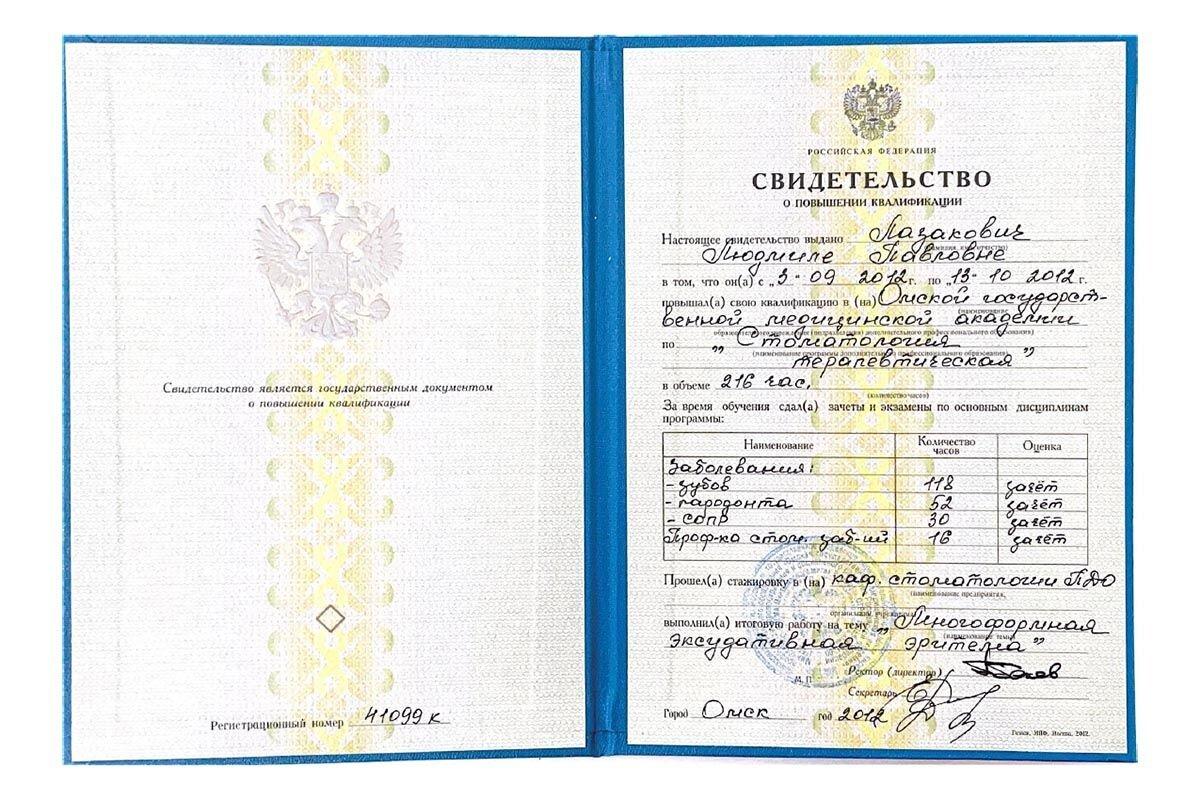 Свидетельство является государственным документом
о повышении квалификации
Регистрационный номер 41099 к
РОССИЙСКАЯ ФЕДЕРАЦИЯ
СВИДЕТЕЛЬСТВО
О ПОВЫШЕНИИ КВАЛИФИКАЦИИ
Настоящее свидетельство выдано Лазакович
Людмиле Павловне
в том, что он(а) с „3" 09 2012 г. по „13" 10 2012 г.
повышал(а) свою квалификацию в (на) Омской государст-
(наименование
венной медицинской академии
образовательного учреждения (подразделения) дополнительного профессионального образования)
по „Стоматология
(наименование программы дополнительного профессионального образования)
терапевтическая"
в объеме 216 час.
(количество часов)
За время обучения сдал(а) зачеты и экзамены по основным дисциплинам
программы:
Наименование Количество часов Оценка
Заболевания:
- зубов 118 зачёт
- пародонта 52 зачёт
- СОПР 30 зачёт
Проф-ка стом. заб-ий 16 зачёт
Прошел(а) стажировку в (на) каф. стоматологии ПДО
(наименование предприятия,
организации, учреждения)
выполнил(а) итоговую работу на тему „Многоформная
(наименование темы)
эксудативная эритема"
М. П. Ректор (директор)
Секретарь
Город Омск год 2012
Гознак, МПФ, Москва, 2012.